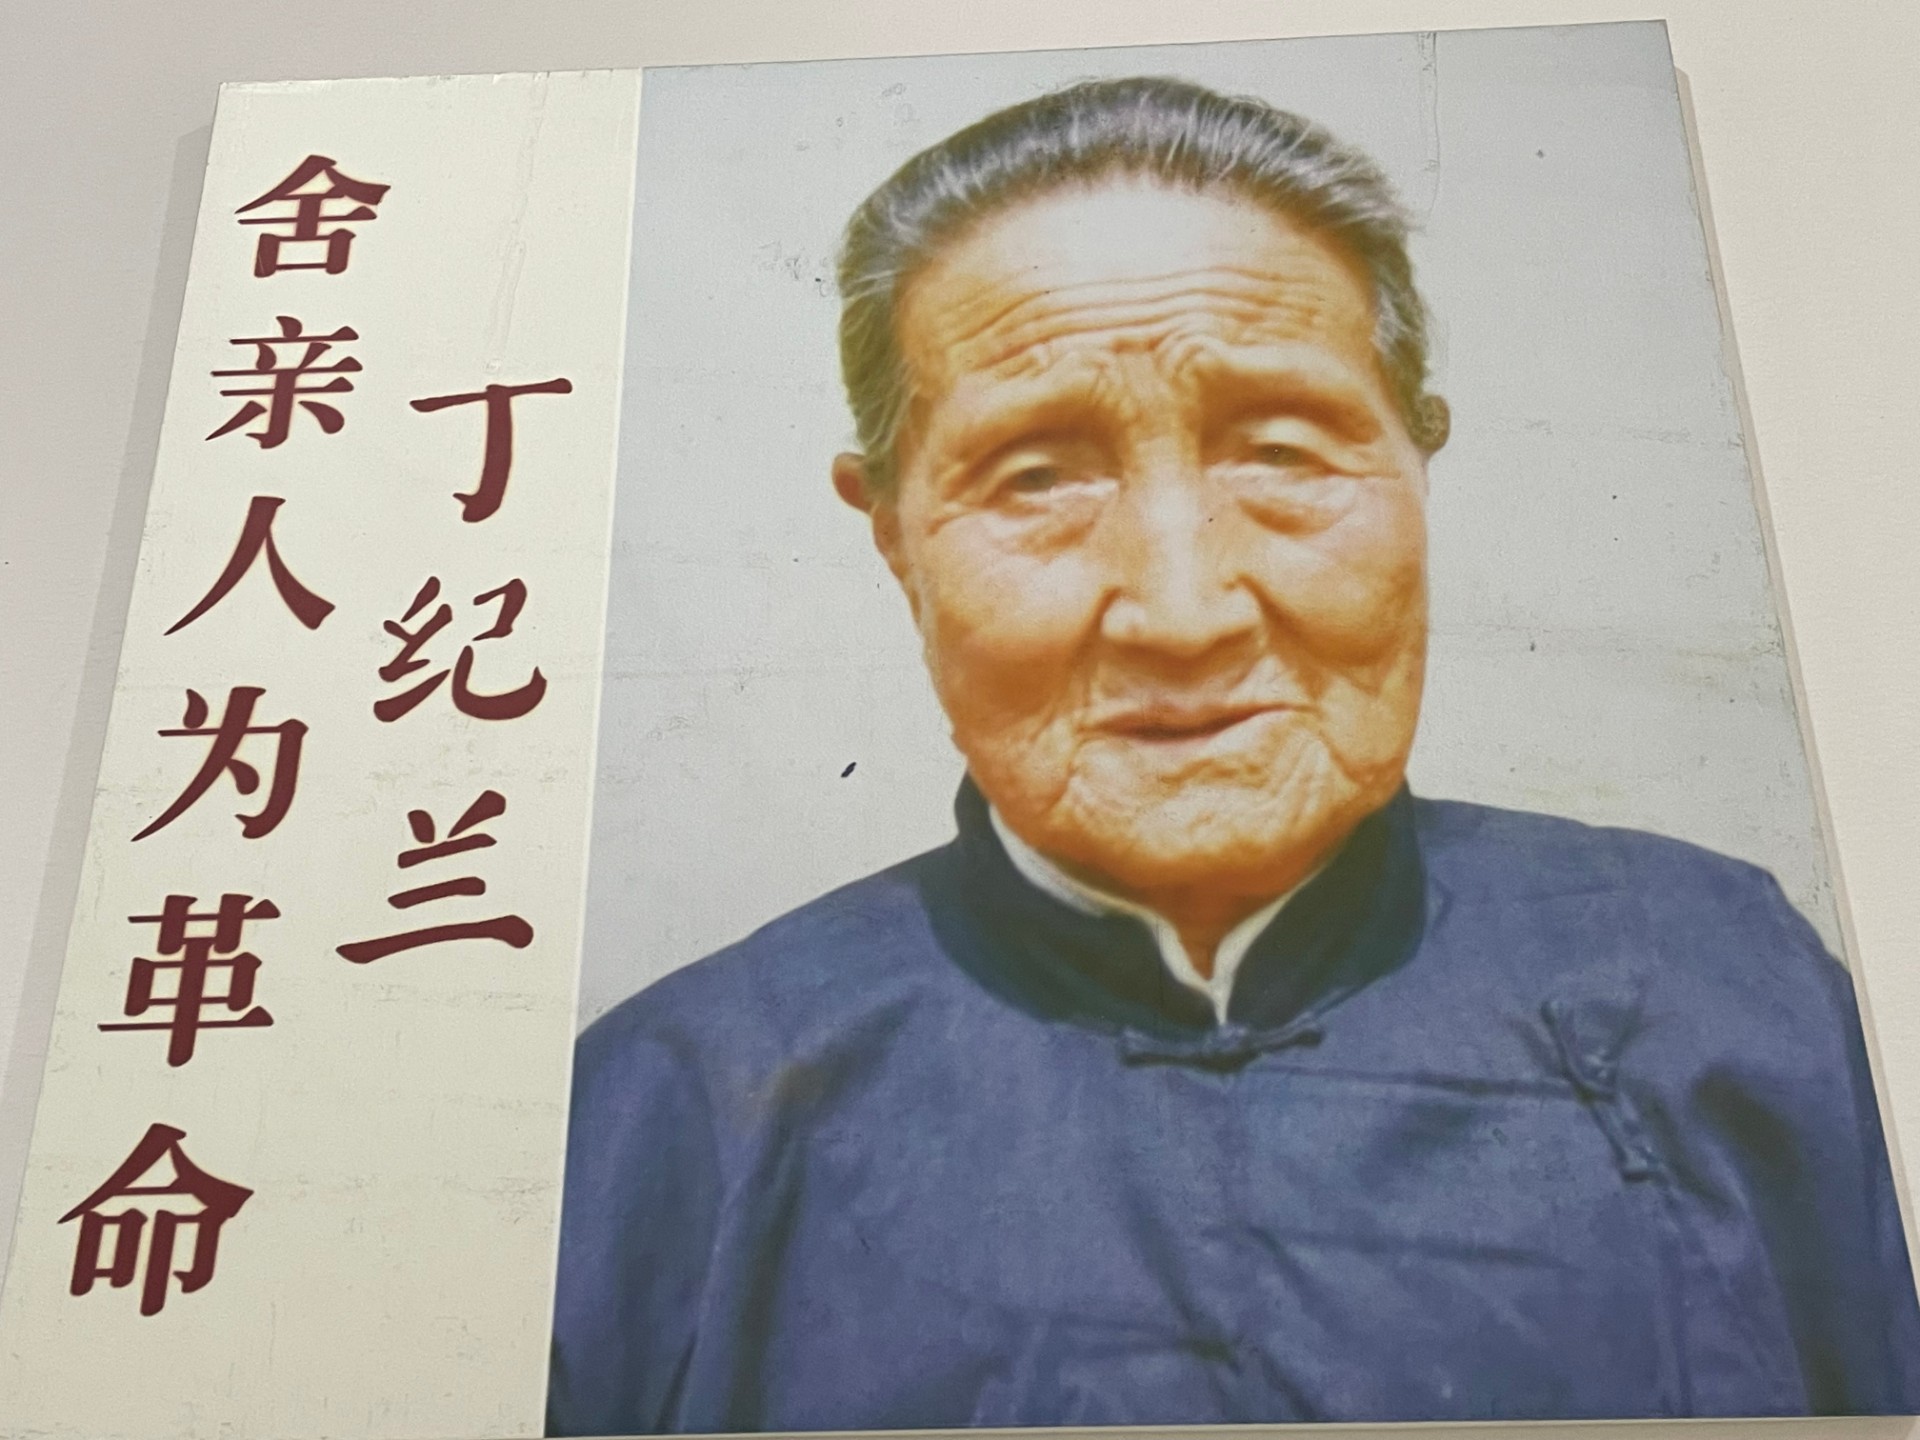 舍亲人为革命
丁纪兰